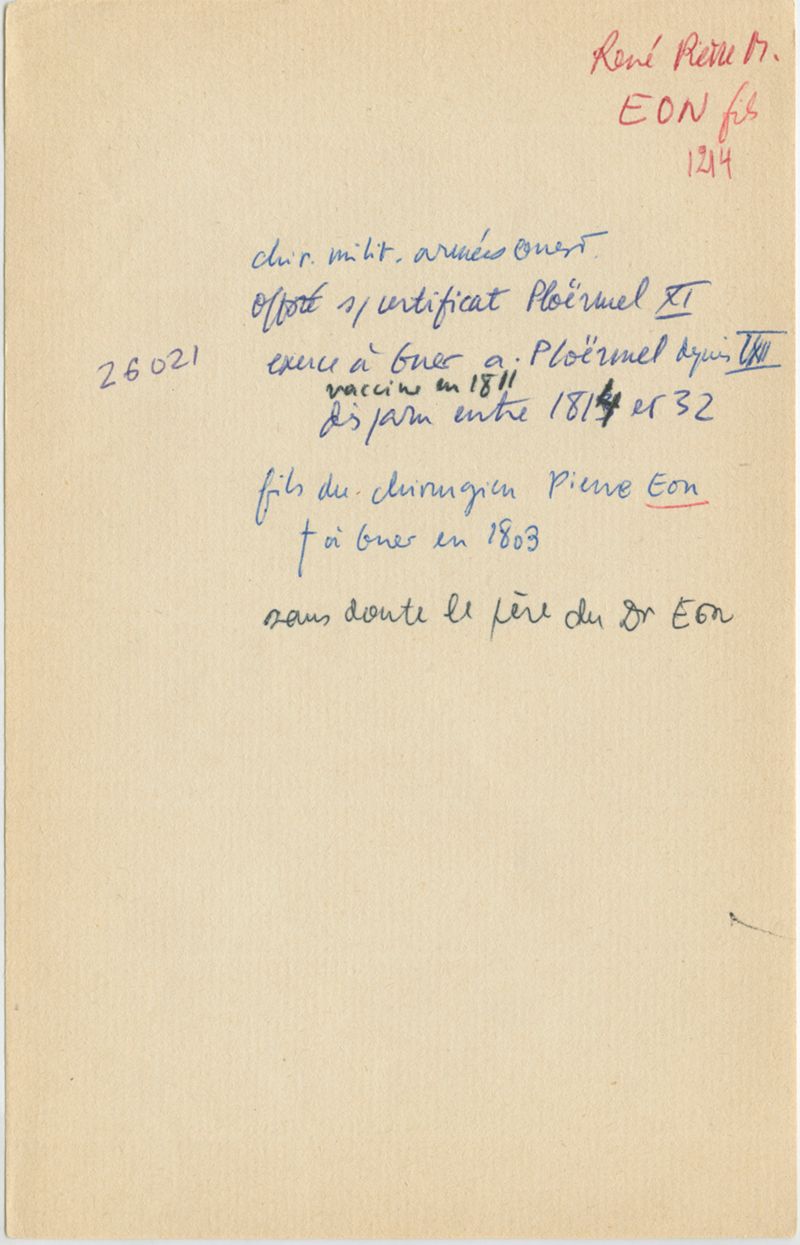 René Pierre M.
EON fils
1214
chir. milit. armées ouest
s/ certificat Ploërmel XI
exerce à Guer a. Ploërmel depuis
26021
vaccine en 1811
disparu entre 1814 et 32
fils du chirurgien Pierre Eon
† à Guer en 1803
sans doute le père du Dr Eon